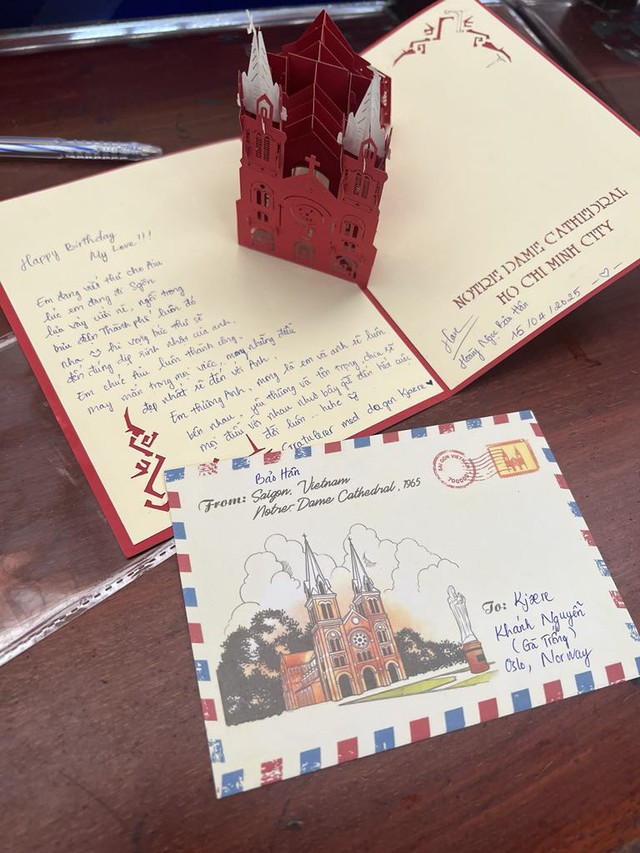 Happy Birthday
My Love!!!
Em đang viết thư cho Anh
lúc em đang đi Sgòn
bưu điện Thành phố luôn đó
nha
đến đúng dịp sinh nhật của anh.
Em chúc Anh luôn thành công,
may mắn trong mọi việc, mong những điều
đẹp nhất sẽ đến với Anh.
Em thương Anh, mong là em và anh sẽ luôn
bên nhau, yêu thương và tôn trọng, chia sẻ
mọi điều với nhau như bây giờ đến hết cuộc
đời luôn... hehe
Gratulerer med dagen Kjære ♥
NOTRE DAME CATHEDRAL
HO CHI MINH CITY
Hoàng Ngọc Bảo Hân
15/04/2025
Bảo Hân
From: Saigon, Vietnam
Notre-Dame Cathedral, 1965
SAIGON VIETNAM
700000
To: Kjære
Khánh Nguyễn
(Gà Trống)
Oslo, Norway